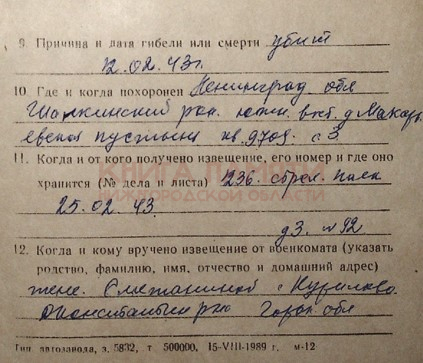 9. Причина и дата гибели или смерти убит
12.02.43г.
10. Где и когда похоронен Ленинград. обл
район. д Макарь
евская пустынь кв. 9708. с 3
11. Когда и от кого получено извещение, его номер и где оно
хранится (№ дела и листа) 236. стрел. полк
25.02.43.
д 3. № 92
12. Когда и кому вручено извещение от военкомата (указать
родство, фамилию, имя, отчество и домашний адрес)
жене. Сметаниной с Курилово
Горьк. обл
Тип. автозавода, з. 5832, т. 500000, 15-VIII-1989 г. м-12
КНИГА ПАМЯТИ
НИЖЕГОРОДСКОЙ ОБЛАСТИ